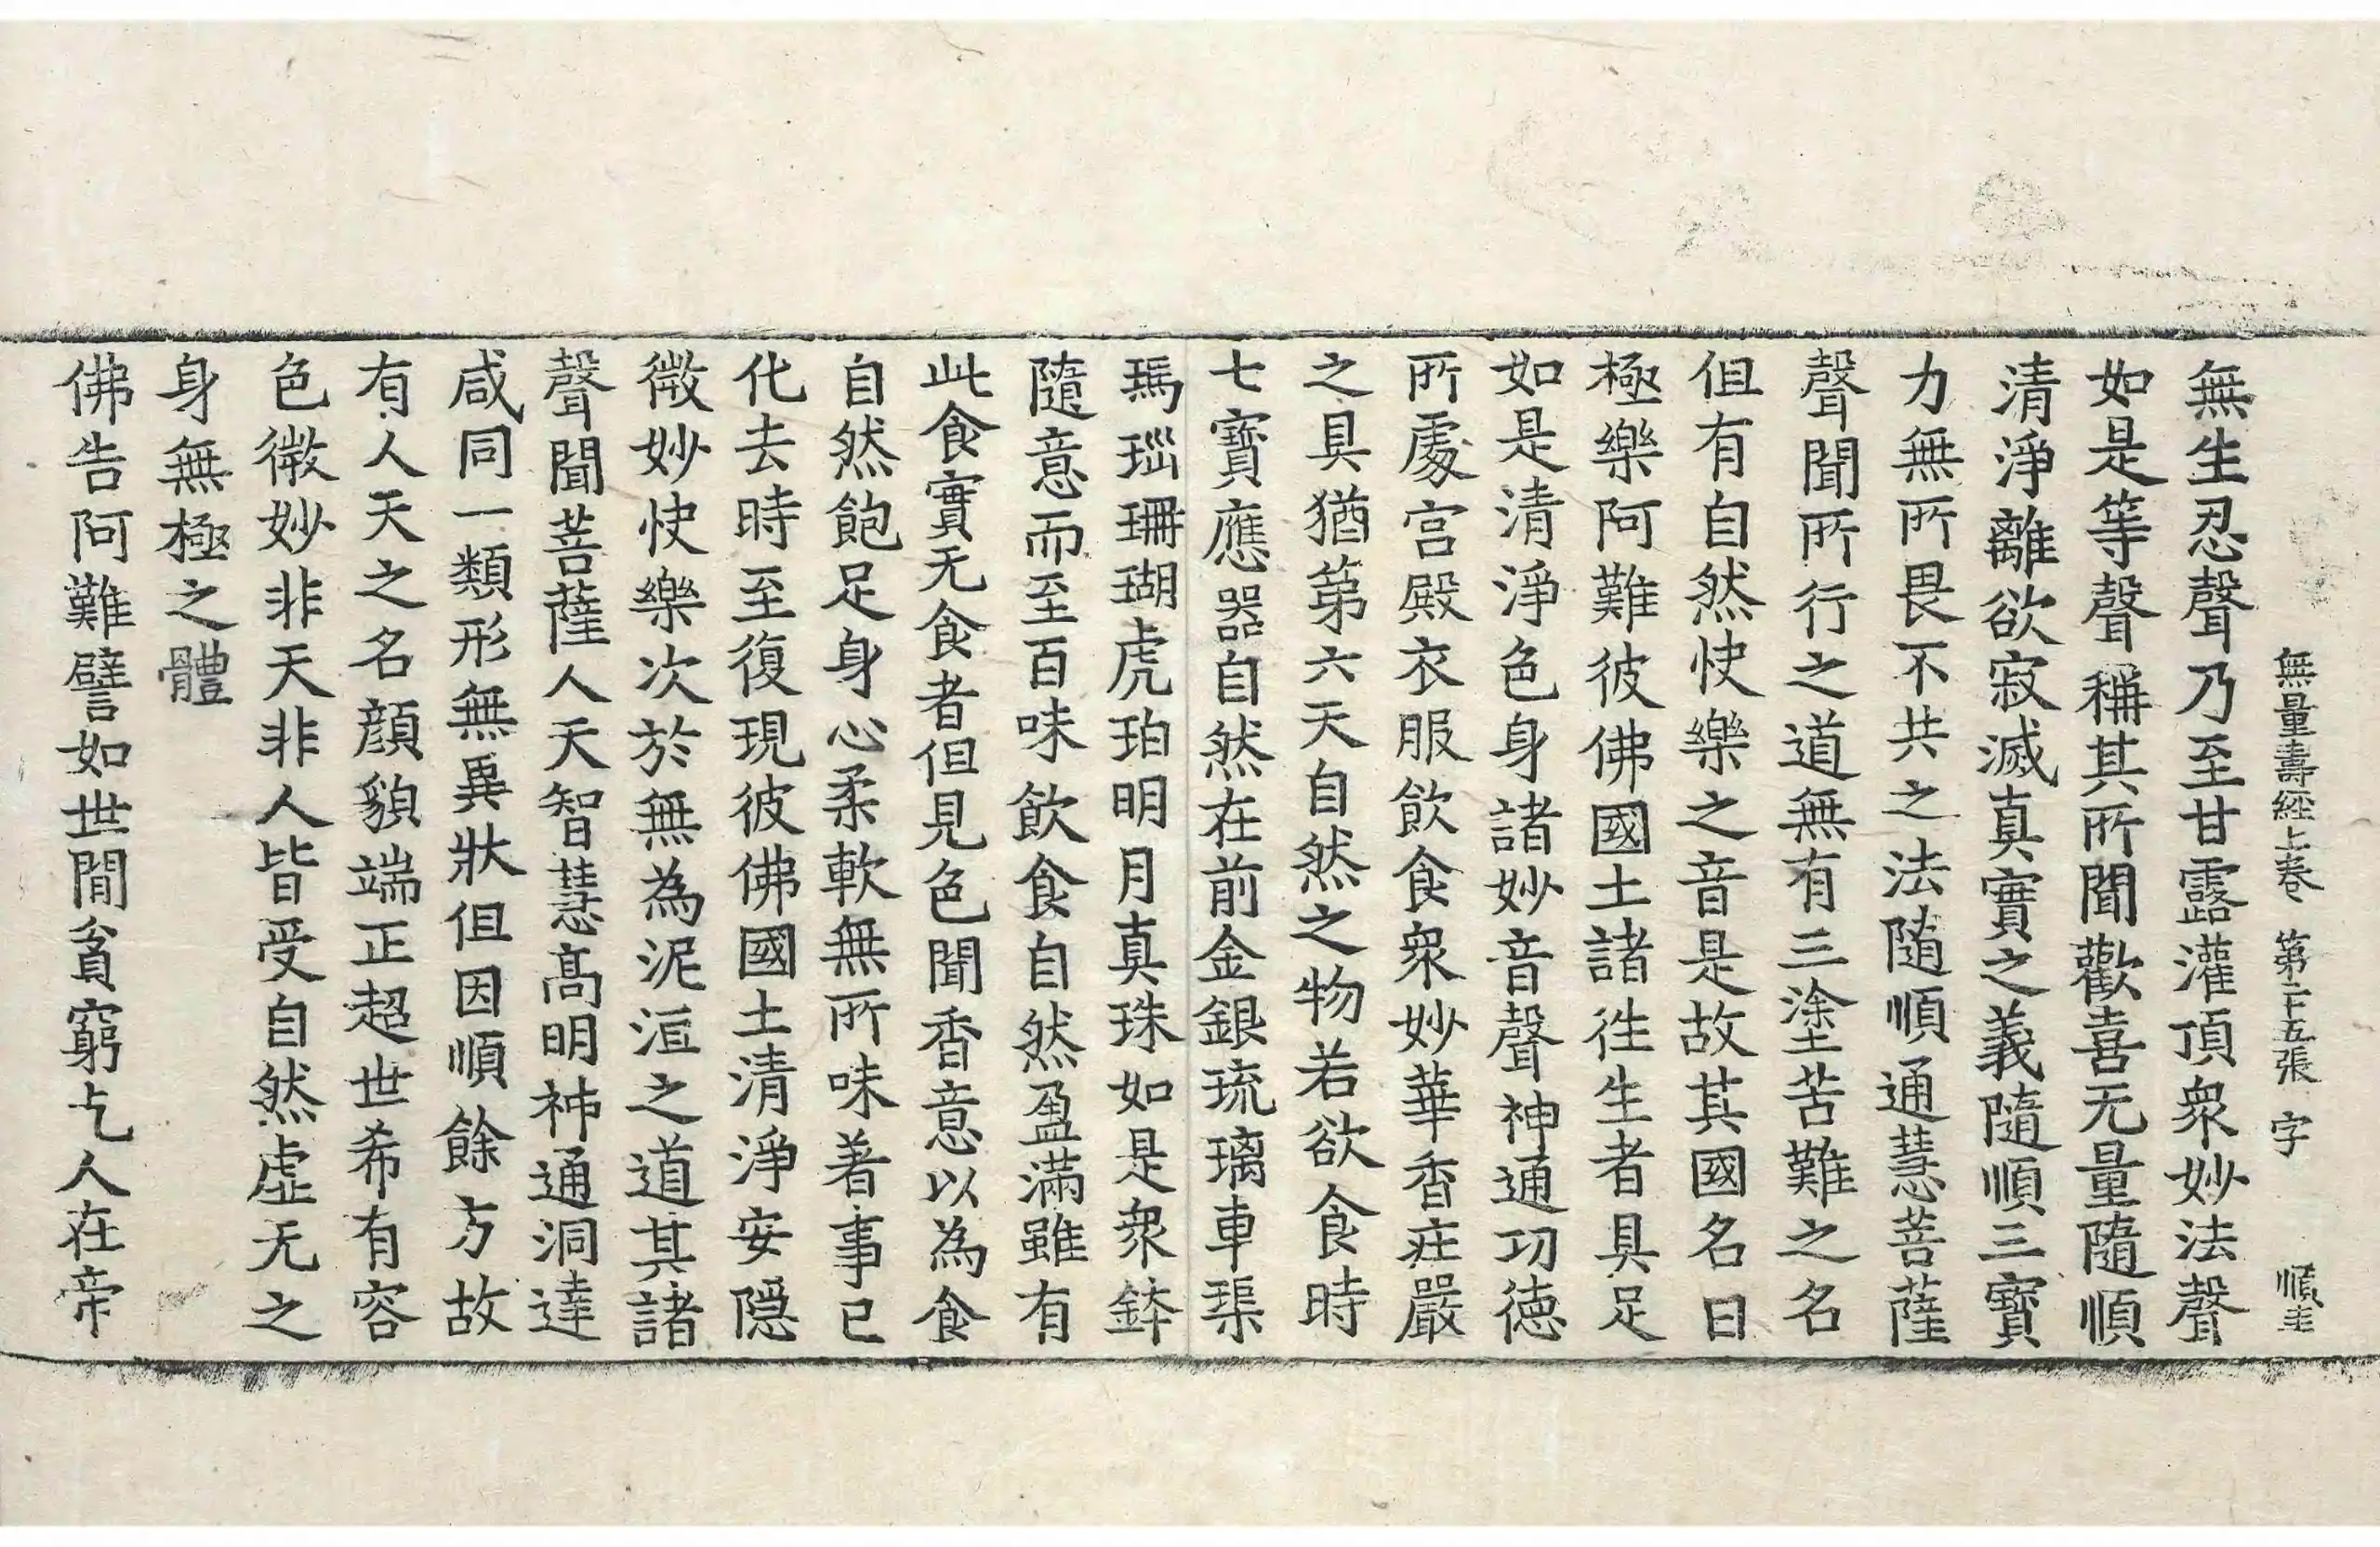 無量壽經上卷 第二十五張 字 順圭
無生忍聲乃至甘露灌頂衆妙法聲
如是等聲稱其所聞歡喜无量隨順
清淨離欲寂滅真實之義隨順三寶
力無所畏不共之法隨順通慧菩薩
聲聞所行之道無有三塗苦難之名
但有自然快樂之音是故其國名曰
極樂阿難彼佛國土諸往生者具足
如是清淨色身諸妙音聲神通功德
所處宮殿衣服飲食衆妙華香莊嚴
之具猶第六天自然之物若欲食時
七寶應器自然在前金銀琉璃車璖
瑪瑙珊瑚虎珀明月真珠如是衆鉢
隨意而至百味飲食自然盈滿雖有
此食實无食者但見色聞香意以為食
自然飽足身心柔軟無所味著事已
化去時至復現彼佛國土清淨安隱
微妙快樂次於無為泥洹之道其諸
聲聞菩薩人天智慧高明神通洞達
咸同一類形無異狀但因順餘方故
有人天之名顔貌端正超世希有容
色微妙非天非人皆受自然虛无之
身無極之體
佛告阿難譬如世間貧窮乞人在帝